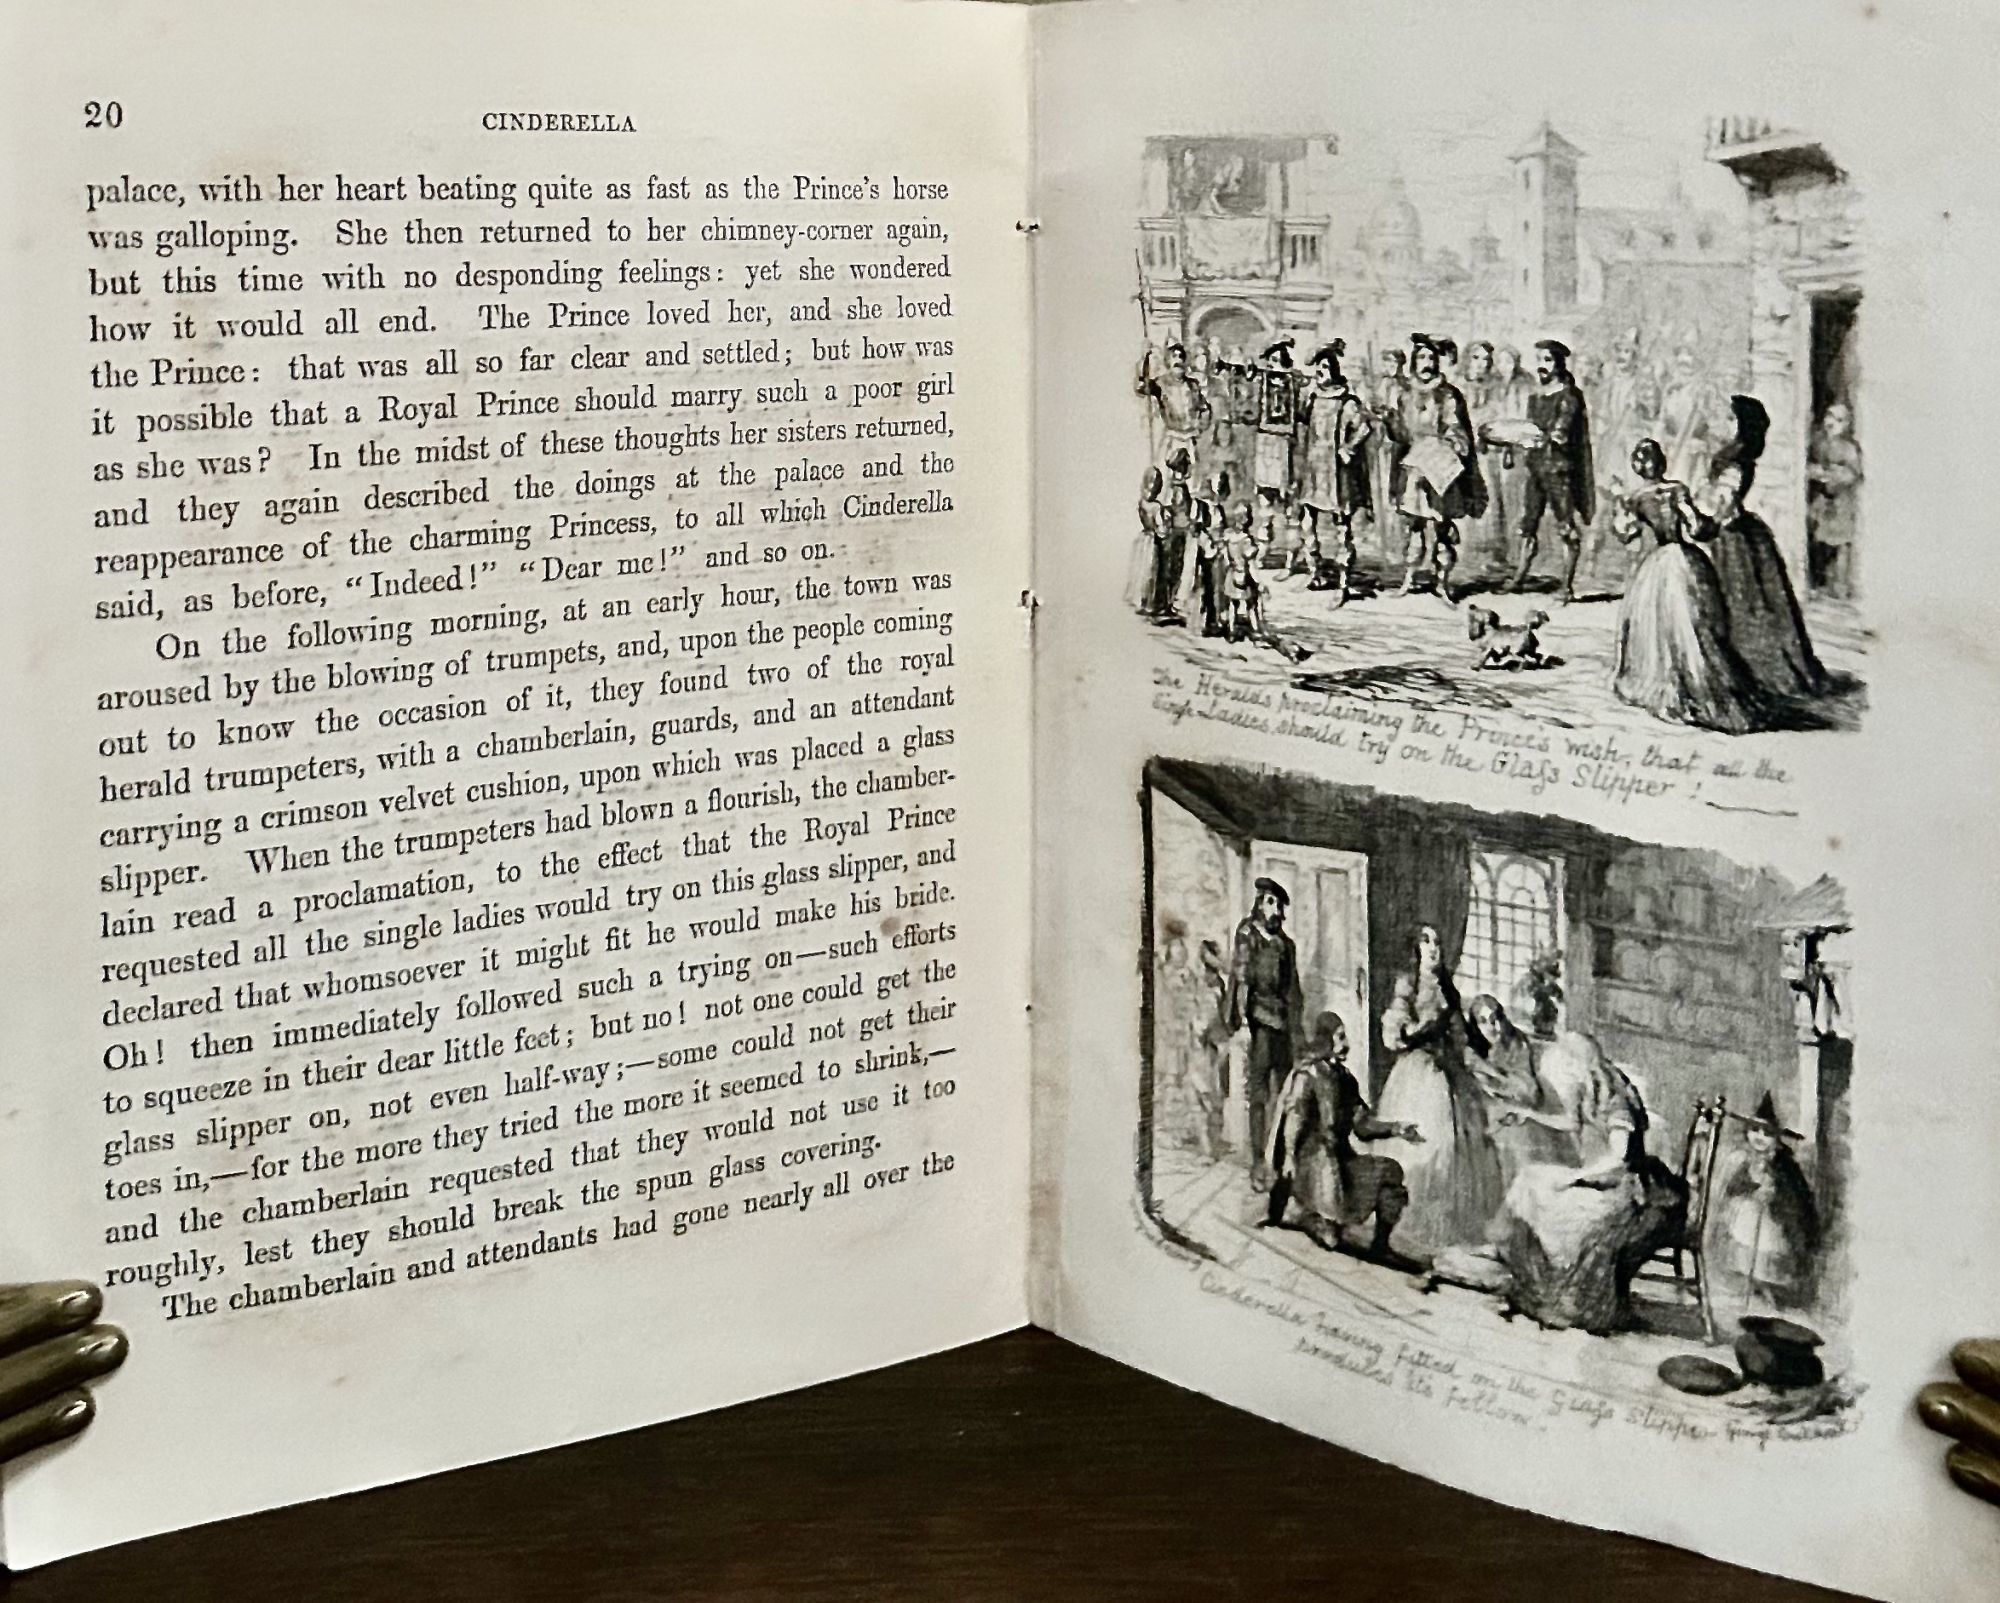 20
CINDERELLA
palace, with her heart beating quite as fast as the Prince's horse
was galloping. She then returned to her chimney-corner again,
but this time with no desponding feelings: yet she wondered
how it would all end. The Prince loved her, and she loved
the Prince: that was all so far clear and settled; but how was
it possible that a Royal Prince should marry such a poor girl
as she was? In the midst of these thoughts her sisters returned,
and they again described the doings at the palace and the
reappearance of the charming Princess, to all which Cinderella
said, as before, “Indeed!” “Dear me!” and so on.
On the following morning, at an early hour, the town was
aroused by the blowing of trumpets, and, upon the people coming
out to know the occasion of it, they found two of the royal
herald trumpeters, with a chamberlain, guards, and an attendant
carrying a crimson velvet cushion, upon which was placed a glass
slipper. When the trumpeters had blown a flourish, the chamber-
lain read a proclamation, to the effect that the Royal Prince
requested all the single ladies would try on this glass slipper, and
declared that whomsoever it might fit he would make his bride.
Oh! then immediately followed such a trying on—such efforts
to squeeze in their dear little feet; but no! not one could get the
glass slipper on, not even half-way;—some could not get their
toes in,—for the more they tried the more it seemed to shrink,—
and the chamberlain requested that they would not use it too
roughly, lest they should break the spun glass covering.
The chamberlain and attendants had gone nearly all over the
The Heralds proclaiming the Prince's wish, that all the
Single Ladies should try on the Glass Slipper!
Cinderella having fitted on the Glass Slipper
produces its fellow.
George Cruikshank